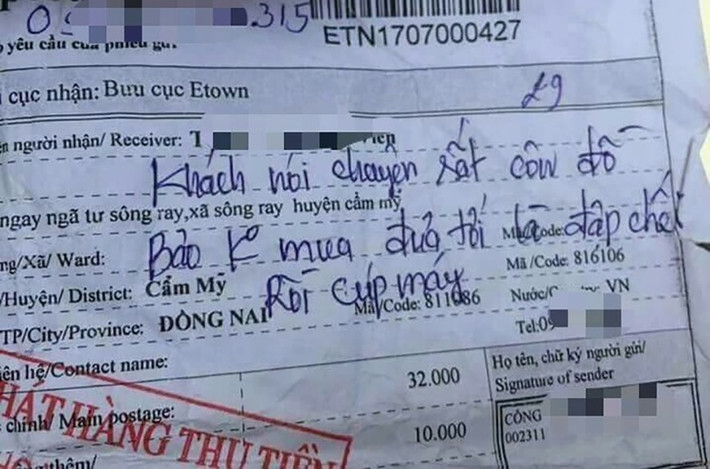 .315
ETN1707000427
yêu cầu của phiếu gửi
cục nhận: Bưu cục Etown
29
người nhận/ Receiver: T
Khách nói chuyện rất côn đồ
ngay ngã tư sông ray, xã sông ray huyện cẩm mỹ
Bảo K mua đưa tới là đập chết
/Xã/ Ward:
Mã/Code: 816106
Rồi cúp máy
/Huyện/ District: Cẩm Mỹ
Mã/Code: 811086
Nước/ VN
TP/City/Province: ĐỒNG NAI
Tel:09
hệ/Contact name:
32.000
Họ tên, chữ ký người gửi/
Signature of sender
PHÁT HÀNG THU TIỀN
chính/ Main postage:
10.000
CÔNG
002311
thêm/